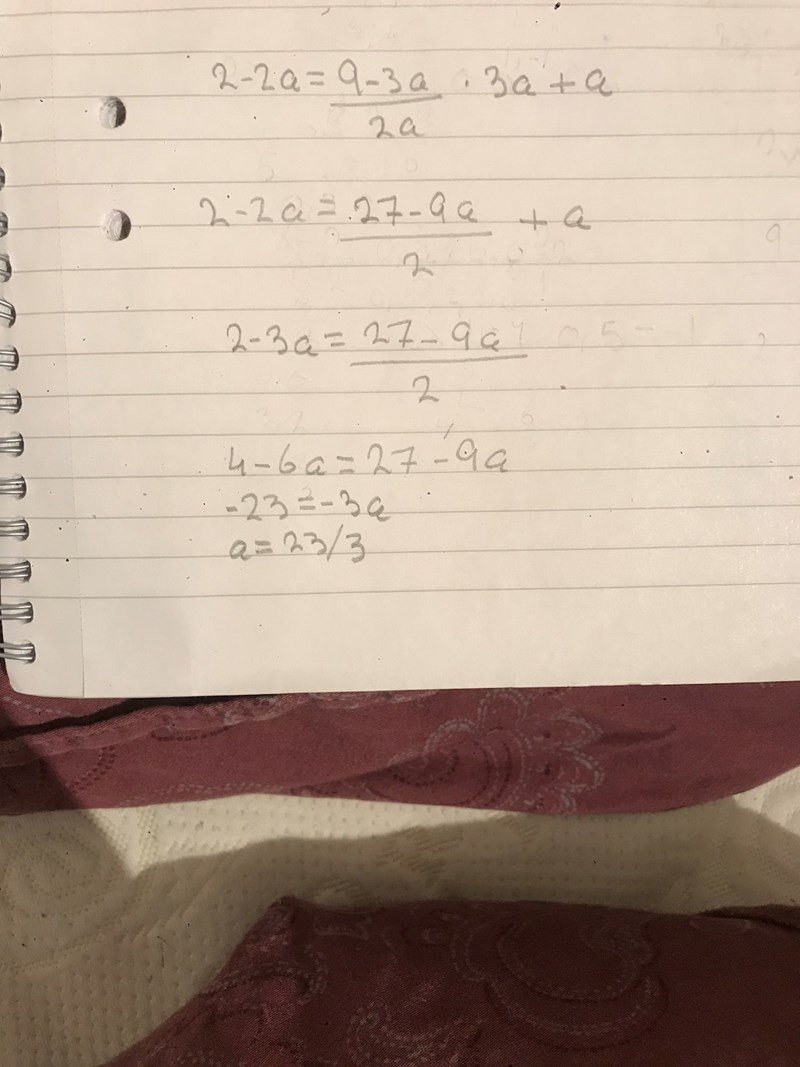 2-2a = 9-3a/2a · 3a + a
2-2a = 27-9a/2 + a
2-3a = 27-9a/2
4-6a = 27-9a
-23 = -3a
a = 23/3